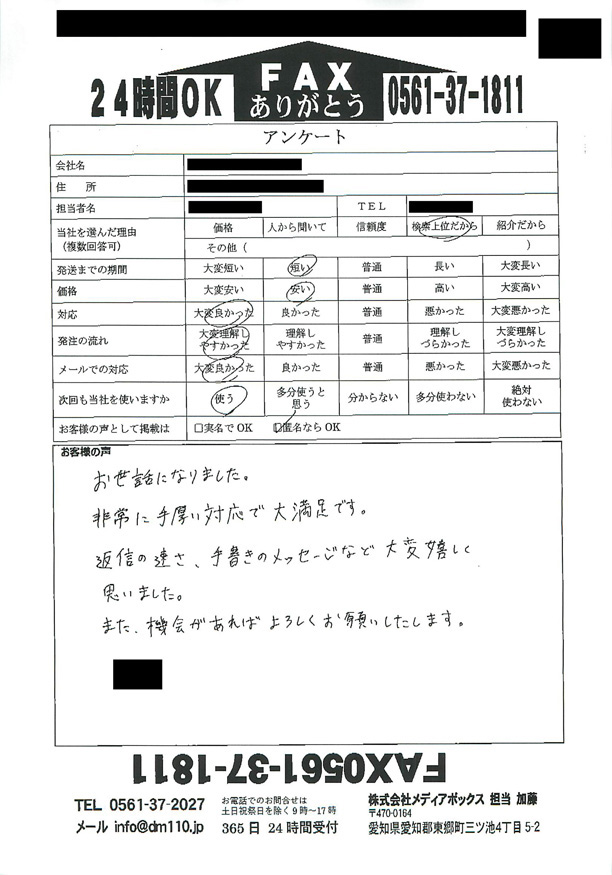 24時間OK
FAX
ありがとう
0561-37-1811
アンケート
会社名
住 所
担当者名 TEL
当社を選んだ理由
(複数回答可)
価格 人から聞いて 信頼度 検索上位だから 紹介だから
その他( )
発送までの期間 大変短い 短い 普通 長い 大変長い
価格 大変安い 安い 普通 高い 大変高い
対応 大変良かった 良かった 普通 悪かった 大変悪かった
発注の流れ 大変理解しやすかった 理解しやすかった 普通 理解しづらかった 大変理解しづらかった
メールでの対応 大変良かった 良かった 普通 悪かった 大変悪かった
次回も当社を使いますか 使う 多分使うと思う 分からない 多分使わない 絶対使わない
お客様の声として掲載は □実名でOK ☑匿名ならOK
お客様の声
お世話になりました。
非常に手厚い対応で大満足です。
返信の速さ、手書きのメッセージなど大変嬉しく
思いました。
また、機会があればよろしくお願いいたします。
FAX0561-37-1811
TEL 0561-37-2027
メール info@dm110.jp
お電話でのお問合せは
土日祝祭日を除く9時～17時
365日 24時間受付
株式会社メディアボックス 担当 加藤
〒470-0164
愛知県愛知郡東郷町三ツ池4丁目5-2